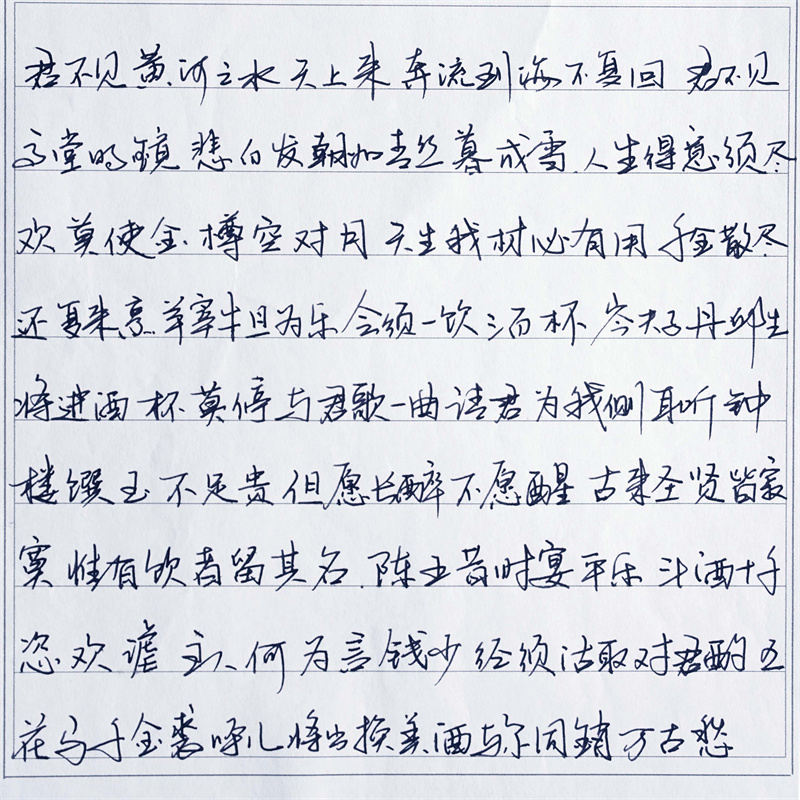 君不见黄河之水天上来奔流到海不复回 君不见
高堂明镜悲白发朝如青丝暮成雪人生得意须尽
欢莫使金樽空对月天生我材必有用千金散尽
还复来烹羊宰牛且为乐会须一饮三百杯岑夫子丹邱生
将进酒杯莫停与君歌一曲请君为我侧耳听钟
楼馔玉不足贵但愿长醉不愿醒古来圣贤皆寂
寞惟有饮者留其名陈王昔时宴平乐斗酒十千
恣欢谑主人何为言钱少经须沽取对君酌五
花马千金裘呼儿将出换美酒与尔同销万古愁